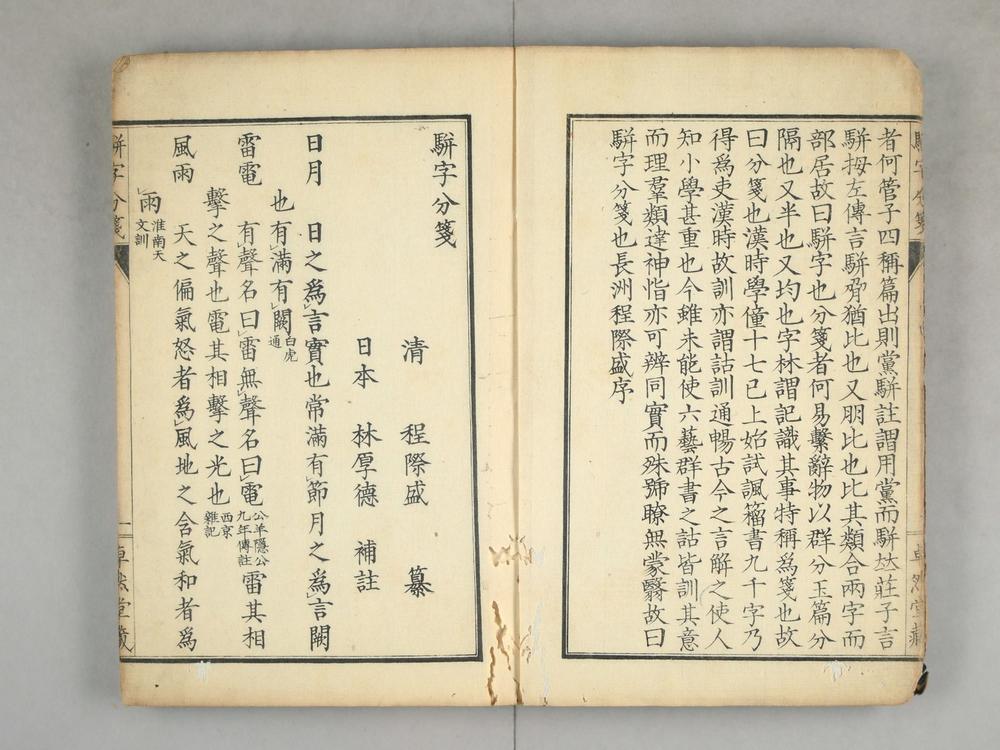 者何管子四稱篇出則黨駢註謂用黨而駢㚎莊子言
駢拇左傳言駢脅猶比也又朋比也比其類合兩字而
部居故曰駢字也分箋者何易繫辭物以群分玉篇分
隔也又半也又均也字林謂記識其事特稱為箋也故
曰分箋也漢時學僮十七已上始試諷籀書九千字乃
得爲吏漢時故訓亦謂詁訓通暢古今之言解之使人
知小學甚重也今雖未能使六藝群書之詁皆訓其意
而理羣類達神恉亦可辨同實而殊號瞭無蒙翳故曰
駢字分箋也長洲程際盛序
駢字分箋
清 程際盛 纂
日本 林厚德 補註
日月 日之爲言實也常滿有節月之爲言闕
也有滿有闕白虎通
雷電 有聲名曰雷無聲名曰電公羊隱公九年傳註雷其相
擊之聲也電其相擊之光也西京雜記
風雨 天之偏氣怒者爲風地之含氣和者爲
雨淮南天文訓
駢字分箋
一
卓然堂藏